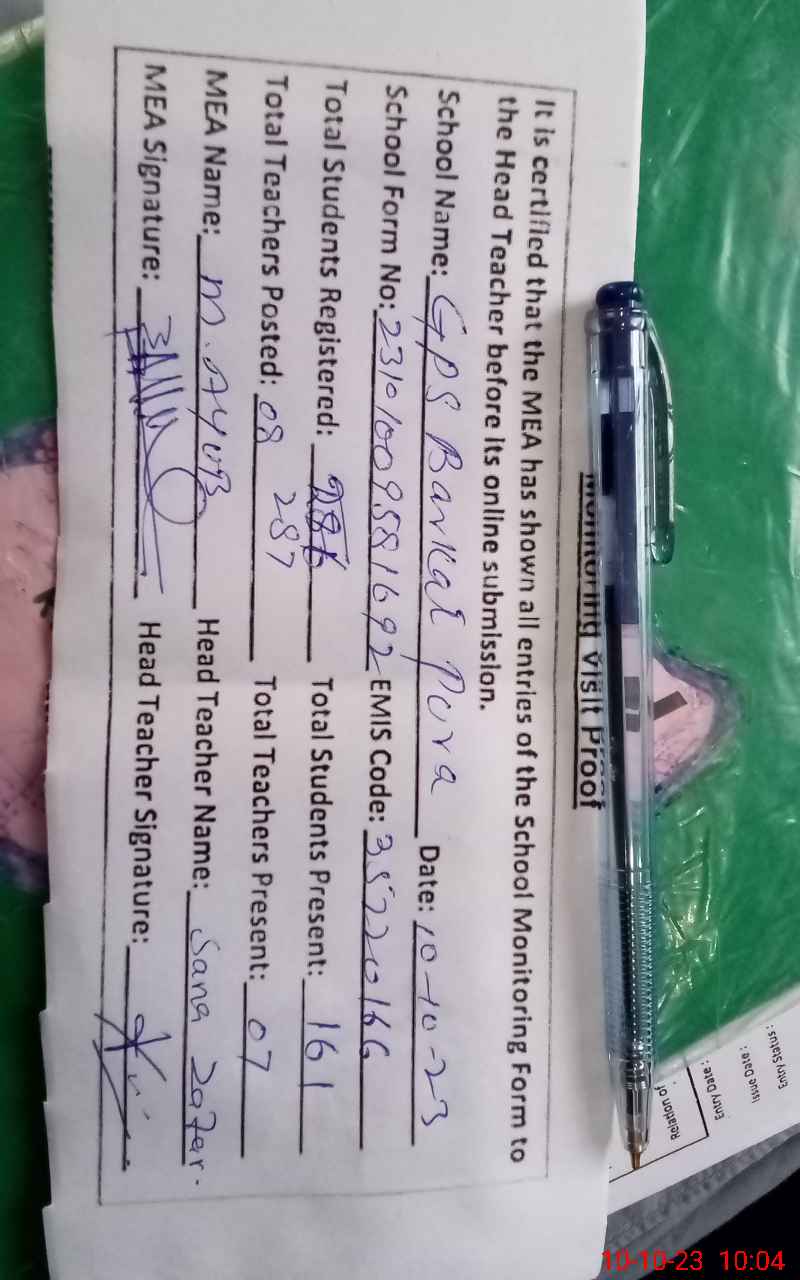 Monitoring Visit Proof
It is certified that the MEA has shown all entries of the School Monitoring Form to
the Head Teacher before its online submission.
School Name: GPS Barkat Pura Date: 10-10-23
School Form No: 2310100958 1692 EMIS Code: 35220166
Total Students Registered: 286 287 Total Students Present: 161
Total Teachers Posted: 08 Total Teachers Present: 07
MEA Name: M. AYUB Head Teacher Name: Sana Zafar.
MEA Signature: Head Teacher Signature:
Entry Status :
Issue Date :
Entry Date :
Relation of
10-10-23 10:04